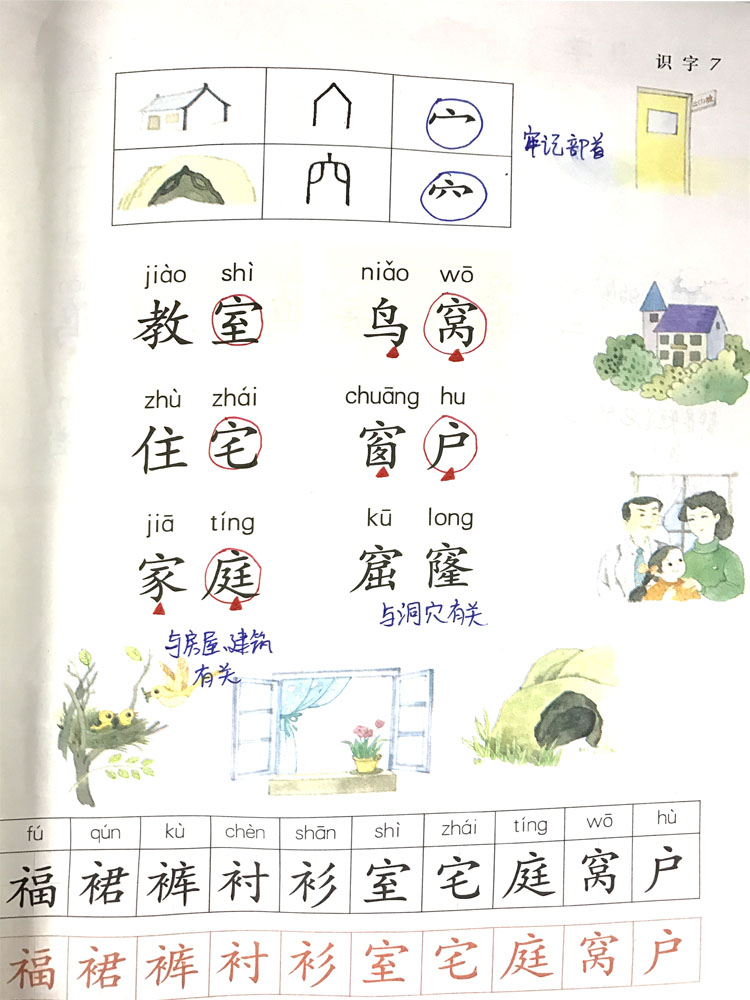 识字7
宀
牢记部首
穴
jiào shì niǎo wō
教室 鸟窝
zhù zhái chuāng hu
住宅 窗户
jiā tíng kū long
家庭 窟窿
与洞穴有关
与房屋、建筑
有关
fú qún kù chèn shān shì zhái tíng wō hù
福 裙 裤 衬 衫 室 宅 庭 窝 户
福 裙 裤 衬 衫 室 宅 庭 窝 户